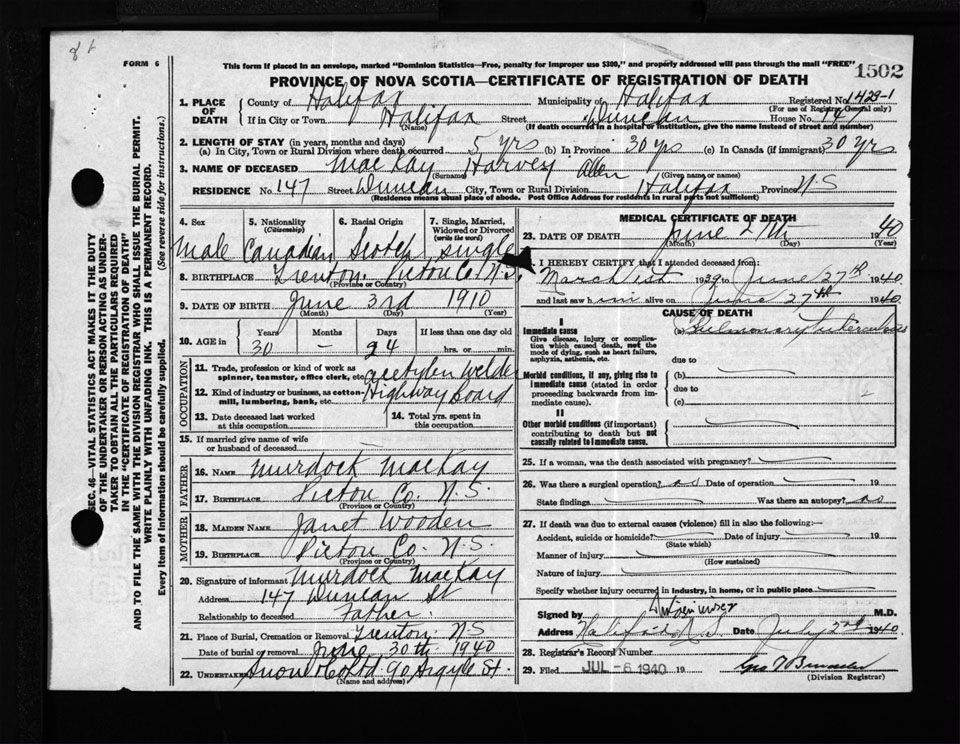 81
FORM 6
This form if placed in an envelope, marked "Dominion Statistics—Free, penalty for improper use $300," and properly addressed will pass through the mail "FREE"
1502
PROVINCE OF NOVA SCOTIA—CERTIFICATE OF REGISTRATION OF DEATH
1. PLACE OF DEATH County of Halifax Municipality of Halifax Registered No. 1429-1
(For use of Registrar General only)
If in City or Town Halifax Street Duncan House No. 147
(Name) (If death occurred in a hospital or institution, give the name instead of street and number)
2. LENGTH OF STAY (in years, months and days)
(a) In City, Town or Rural Division where death occurred 5 yrs (b) In Province 30 yrs (c) In Canada (if immigrant) 30 yrs
3. NAME OF DECEASED MacKay Harvey Allen
(Surname) (Given name or names)
RESIDENCE No. 147 Street Duncan City, Town or Rural Division Halifax Province N-S
(Residence means usual place of abode. Post Office Address for residents in rural parts not sufficient)
4. Sex 5. Nationality (Citizenship) 6. Racial Origin 7. Single, Married, Widowed or Divorced (write the word)
Male Canadian Scotch Single
8. BIRTHPLACE Trenton Pictou Co. N.S.
(Province or Country)
9. DATE OF BIRTH June 3rd 1910
(Month) (Day) (Year)
10. AGE in Years Months Days If less than one day old
30 — 24 hrs. or min.
OCCUPATION
11. Trade, profession or kind of work as spinner, teamster, office clerk, etc. acetylen Welder
12. Kind of industry or business, as cotton-mill, lumbering, bank, etc. Highway Board
13. Date deceased last worked at this occupation
14. Total yrs. spent in this occupation
15. If married give name of wife or husband of deceased
FATHER
16. NAME Murdock MacKay
17. BIRTHPLACE Pictou Co. N.S.
(Province or Country)
MOTHER
18. MAIDEN NAME Janet Wooden
19. BIRTHPLACE Pictou Co. N.S.
(Province or Country)
20. Signature of informant Murdock MacKay
Address 147 Duncan St
Relationship to deceased Father
21. Place of Burial, Cremation or Removal Trenton N.S
Date of burial or removal June 30th 1940
22. UNDERTAKER Snow & Co Ltd 90 Argyle St.
(Name and address)
MEDICAL CERTIFICATE OF DEATH
23. DATE OF DEATH June 27th 1940
(Month) (Day) (Year)
I HEREBY CERTIFY that I attended deceased from:
March 1st 1939 to June 27th 1940
and last saw him alive on June 27th 1940
CAUSE OF DEATH
I
Immediate cause (a) Pulmonary Tuberculosis
Give disease, injury or complication which caused death, not the mode of dying, such as heart failure, asphyxia, asthenia, etc.
due to
Morbid conditions, if any, giving rise to immediate cause (stated in order proceeding backwards from immediate cause). (b)
due to
(c)
II
Other morbid conditions (if important) contributing to death but not causally related to immediate cause.
25. If a woman, was the death associated with pregnancy?
26. Was there a surgical operation? no Date of operation 19
State findings Was there an autopsy? no
27. If death was due to external causes (violence) fill in also the following:—
Accident, suicide or homicide? Date of injury 19
(State which)
Manner of injury
(How sustained)
Nature of injury
Specify whether injury occurred in industry, in home, or in public place
Signed by M.D.
Address Halifax N.S. Date July 2nd 1940
28. Registrar's Record Number
29. Filed JUL - 6 1940 19
(Division Registrar)
SEC. 46—VITAL STATISTICS ACT MAKES IT THE DUTY
OF THE UNDERTAKER OR PERSON ACTING AS UNDER-
TAKER TO OBTAIN ALL THE PARTICULARS REQUIRED
IN THE "CERTIFICATE OF REGISTRATION OF DEATH"
AND TO FILE THE SAME WITH THE DIVISION REGISTRAR WHO SHALL ISSUE THE BURIAL PERMIT.
WRITE PLAINLY WITH UNFADING INK. THIS IS A PERMANENT RECORD.
Every item of information should be carefully supplied. (See reverse side for instructions.)